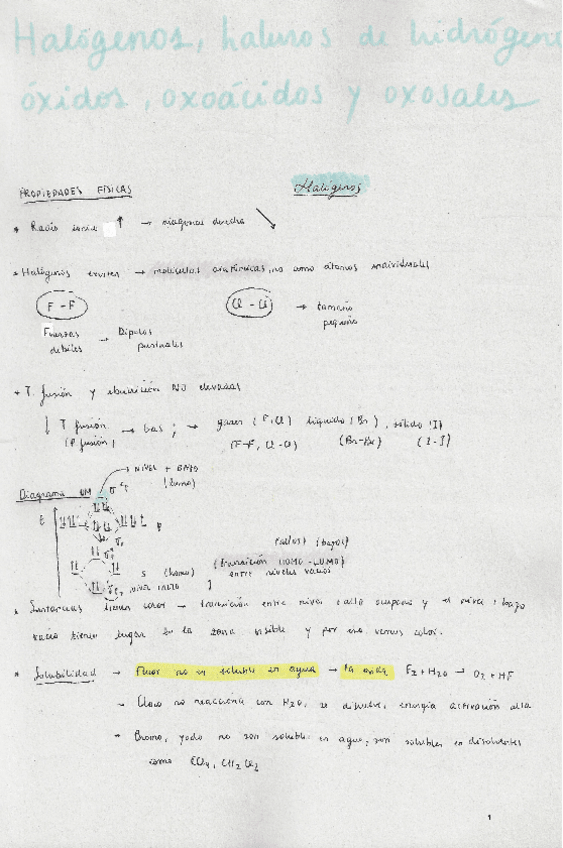 Halógenos, haluros de hidrógeno
óxidos, oxoácidos y oxosales
PROPIEDADES FÍSICAS
Halógenos
* Radio ↑ → diagonal derecha ↘
* Halógenos existen → moléculas diatómicas, no como átomos individuales
F - F
Cl - Cl → tamaño
pequeño
Fuerzas
débiles → Dipolos
* T. fusión y ebullición NO elevadas
↓ T fusión → Gas ; → gases (F, Cl) líquido (Br), sólido (I)
(P. fusión) (F-F, Cl-Cl) (Br-Br) (I-I)
→ NIVEL + BAJO
(Lumo)
Diagrama OM
E
(transición HOMO-LUMO)
entre niveles
s (homo)
NIVEL
* Sustancias tienen color → transición entre nivel + alto ocupado y el nivel + bajo
vacío tiene lugar en la zona visible y por eso vemos color.
* Solubilidad → Fluor no es soluble en agua → la F₂ + H₂O → O₂ + HF
→ Cloro no reacciona con H₂O, se disuelve, energía activación alta
→ Bromo, yodo no son solubles en agua, son solubles en disolventes
como CCl₄, CH₂Cl₂
1